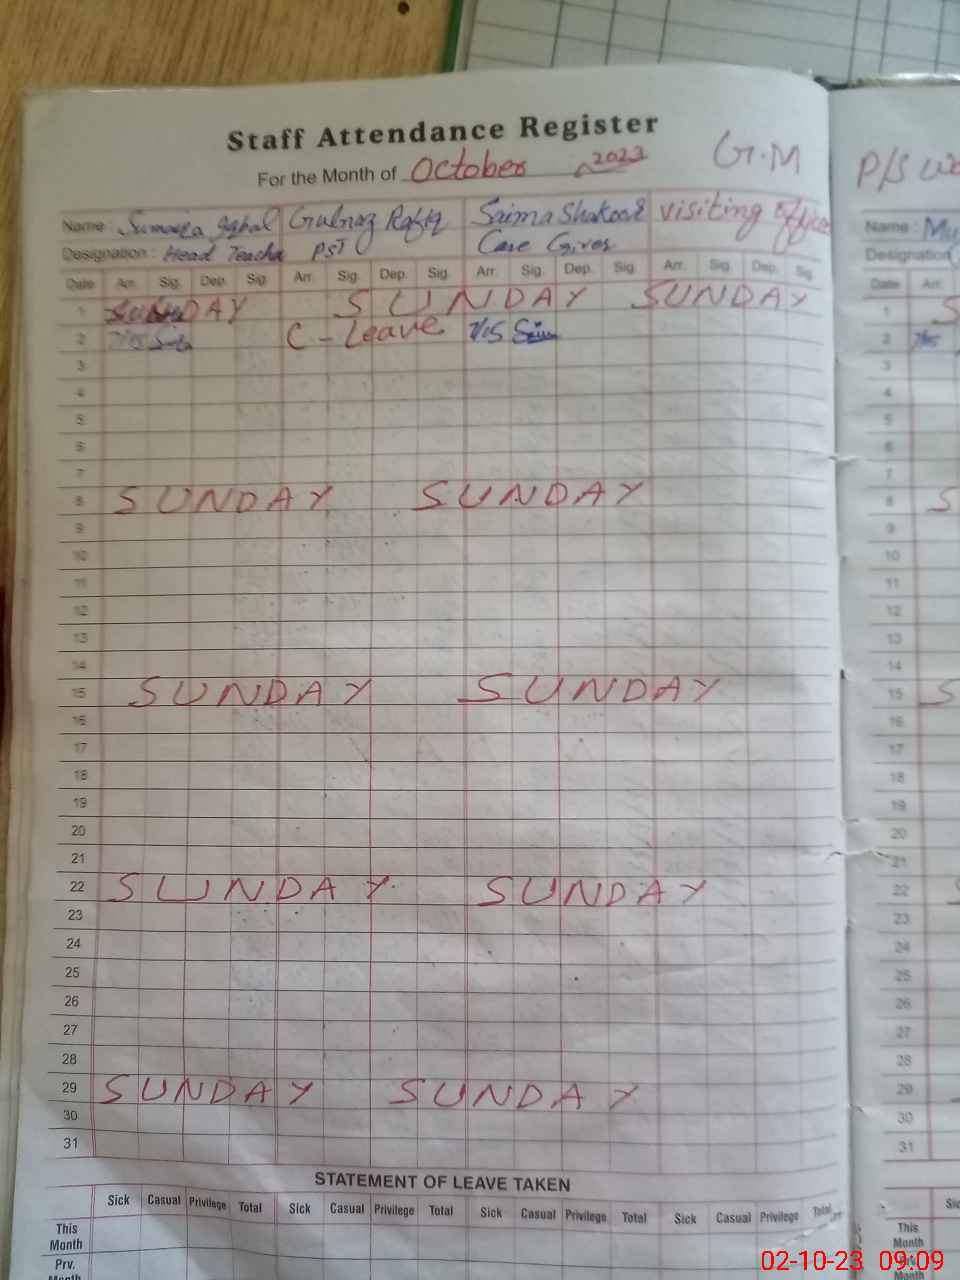 Staff Attendance Register
For the Month of October 2023 G.M
P/S
Name : Sumaira Iqbal Gulnaz Rafiq Saima Shakoor visiting officer
Designation : Head Teacher PST Care Giver
Date Arr. Sig. Dep. Sig. Arr. Sig. Dep. Sig. Arr. Sig. Dep. Sig. Arr. Sig. Dep. Sig.
1 SUNDAY SUNDAY SUNDAY
2 C-Leave 7/15
3
4
5
6
7
8 SUNDAY SUNDAY
9
10
11
12
13
14
15 SUNDAY SUNDAY
16
17
18
19
20
21
22 SUNDAY SUNDAY
23
24
25
26
27
28
29 SUNDAY SUNDAY
30
31
STATEMENT OF LEAVE TAKEN
Sick Casual Privilege Total Sick Casual Privilege Total Sick Casual Privilege Total Sick Casual Privilege Total
This Month
Prv. Month
Name : Mu
Designation
Date Arr.
1 S
2
3
4
5
6
7
8 S
9
10
11
12
13
14
15 S
16
17
18
19
20
21
22
23
24
25
26
27
28
29
30
31
Sic
This
Month
02-10-23 09:09